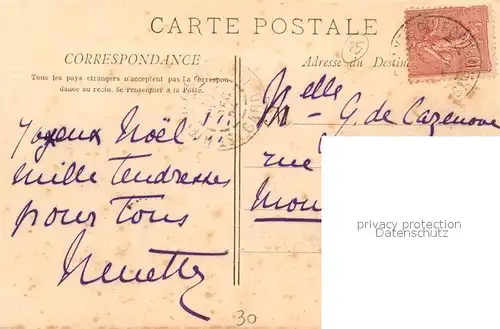 CARTE POSTALE
CORRESPONDANCE
Tous les pays étrangers n'acceptent pas la Correspon-
dance au recto. Se renseigner à la Poste.
Adresse du Destin
25
Joyeux Noël !!!
mille tendresses
pour tous
Nenette
Melle G. de Cazenove
rue
Mon
privacy protection
Datenschutz
30